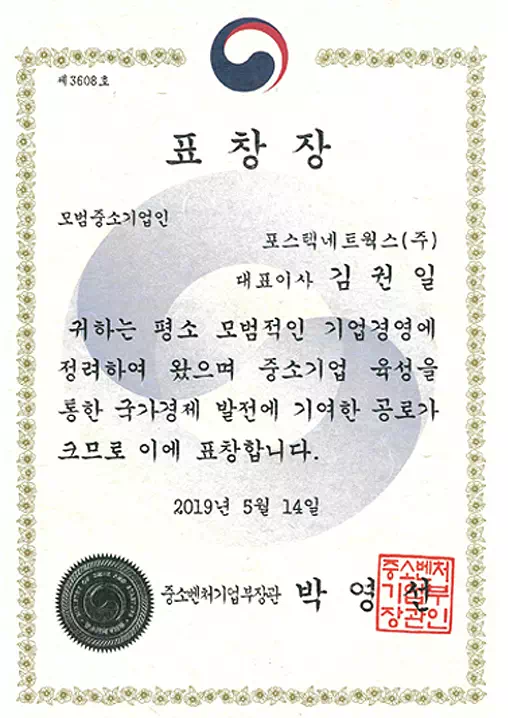 제3608호
표창장
모범중소기업인
포스텍네트웍스(주)
대표이사 김권일
귀하는 평소 모범적인 기업경영에
정려하여 왔으며 중소기업 육성을
통한 국가경제 발전에 기여한 공로가
크므로 이에 표창합니다.
2019년 5월 14일
중소벤처기업부장관 박영선
중소벤처
기업부
장관인